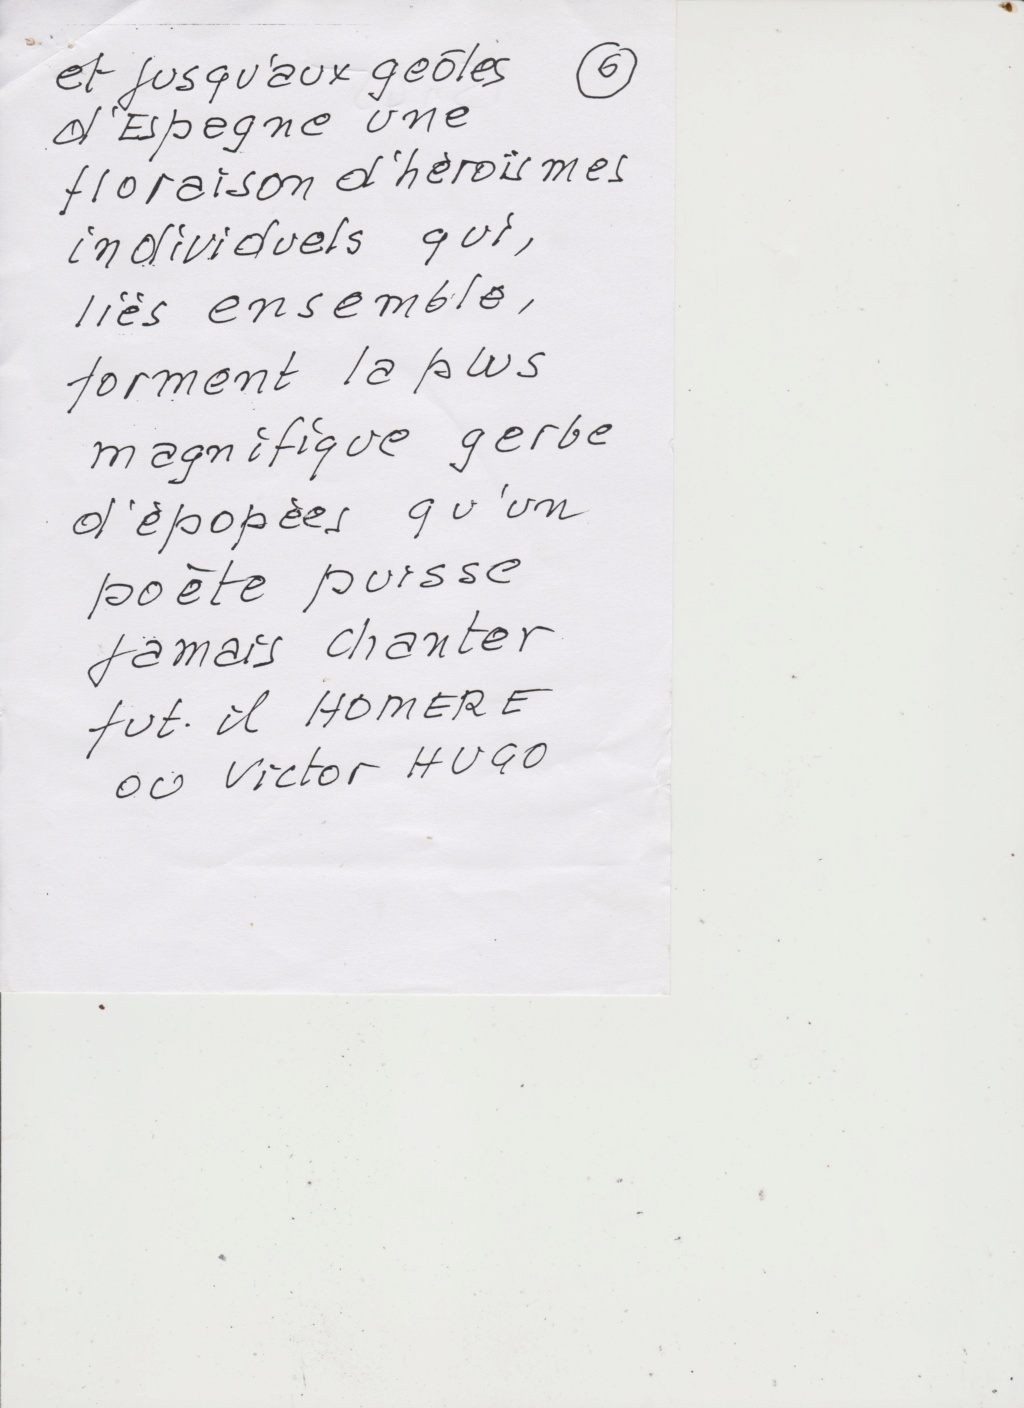 et jusqu'aux geôles ⑥
d'Espegne une
floraison d'héroïsmes
individuels qui,
liés ensemble,
forment la plus
magnifique gerbe
d'épopées qu'un
poète puisse
jamais chanter
fut-il HOMERE
ou Victor HUGO